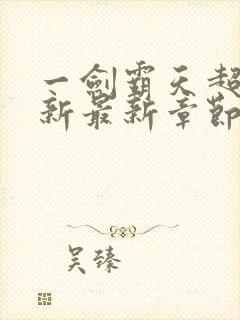 一剑霸天超
新最新章節
吴臻